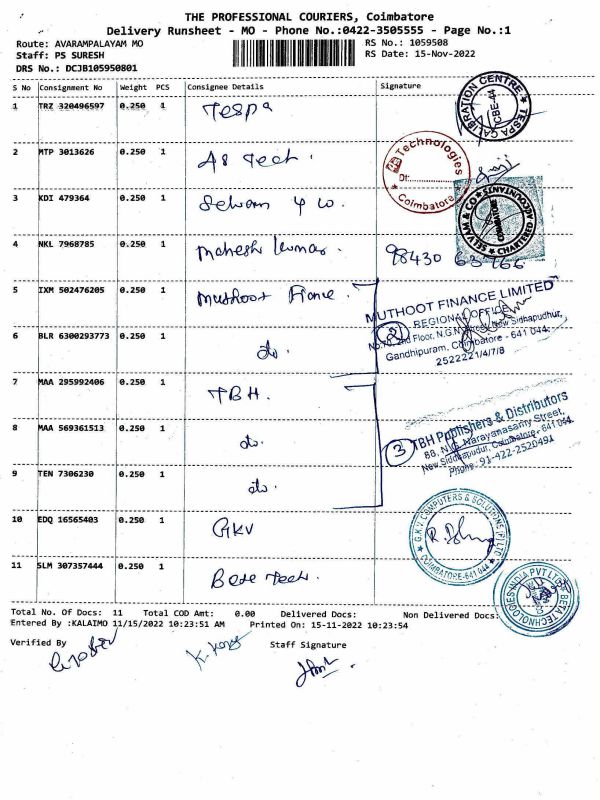 THE PROFESSIONAL COURIERS, Coimbatore
Delivery Runsheet - MO - Phone No.:0422-3505555 - Page No.:1
Route: AVARAMPALAYAM MO
RS No.: 1059508
Staff: PS SURESH
RS Date: 15-Nov-2022
DRS No.: DCJB105950801
S No Consignment No Weight PCS Consignee Details Signature
1 TRZ 320496597 0.250 1 Tespa
TESPA CALIBRATION CENTRE
CBE-44
2 MTP 3013626 0.250 1 A8 Tech.
Technologies
Dt:
Coimbatore
3 KDI 479364 0.250 1 Selvam & Co.
SELVAM & CO
COIMBATORE
CHARTERED ACCOUNTANTS
4 NKL 7968785 0.250 1 Mahesh Kumar. 98430 63766
5 IXM 502476205 0.250 1 Muthoot Finance.
MUTHOOT FINANCE LIMITED
REGIONAL OFFICE
2nd Floor, N.G.N. Street, New Sidhapudhur,
Gandhipuram, Coimbatore - 641 044.
2522221/4/7/8
6 BLR 6300293773 0.250 1 do. 2
7 MAA 295992406 0.250 1 TBH.
8 MAA 569361513 0.250 1 do.
3 TBH Publishers & Distributors
86, N.G. Narayanasamy Street,
New Siddhapudur, Coimbatore - 641 044.
Phone: 91-422-2520491
9 TEN 7306230 0.250 1 do.
10 EDQ 16565403 0.250 1 GKV
G.K.V COMPUTERS & SOLUTIONS (P) LTD
COIMBATORE-641 044
11 SLM 307357444 0.250 1 Beta Tech.
BETA TECHNOLOGIES INDIA PVT LTD
Total No. Of Docs: 11 Total COD Amt: 0.00 Delivered Docs: Non Delivered Docs:
Entered By :KALAIMO 11/15/2022 10:23:51 AM Printed On: 15-11-2022 10:23:54
Verified By Staff Signature